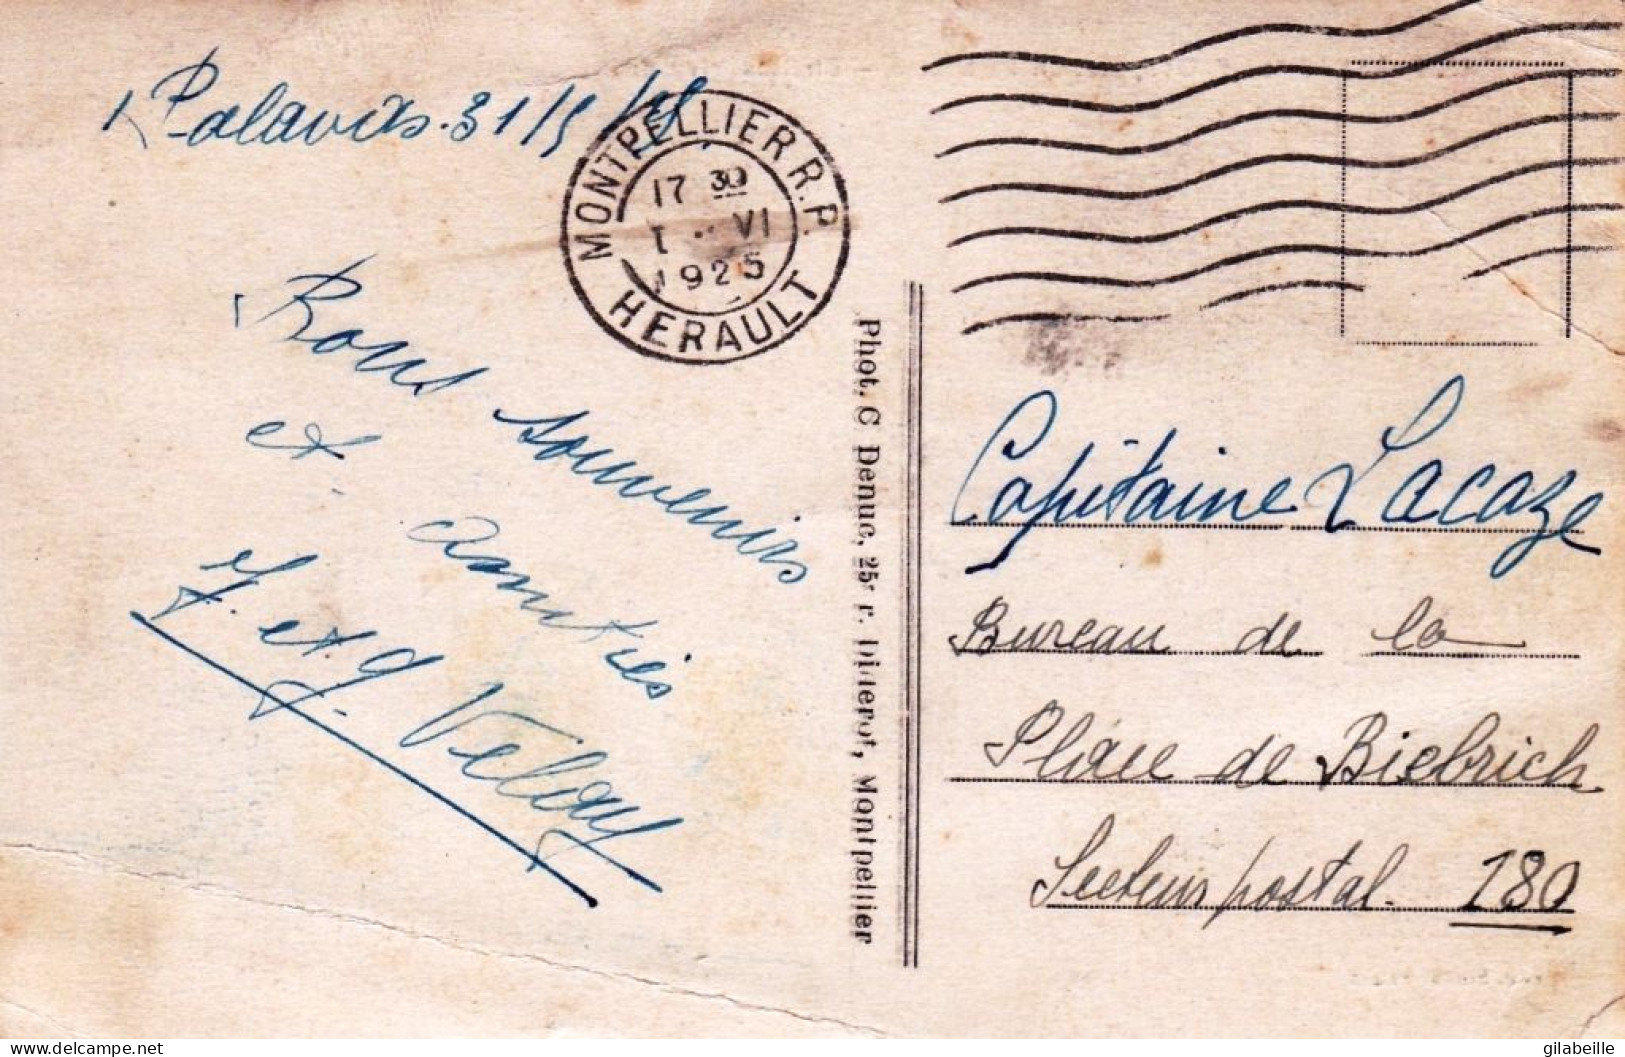 Palavas. 31/5/25
MONTPELLIER R.P.
17 30
1 - VI
1925
HERAULT
Bons souvenirs
et amitiés
J. et J. Velay
Phot. C Denuc, 25 r. Diderot, Montpellier
Capitaine Lacaze
Bureau de la
Place de Biebrich
Secteur postal. 180
delcampe.net
gilabeille